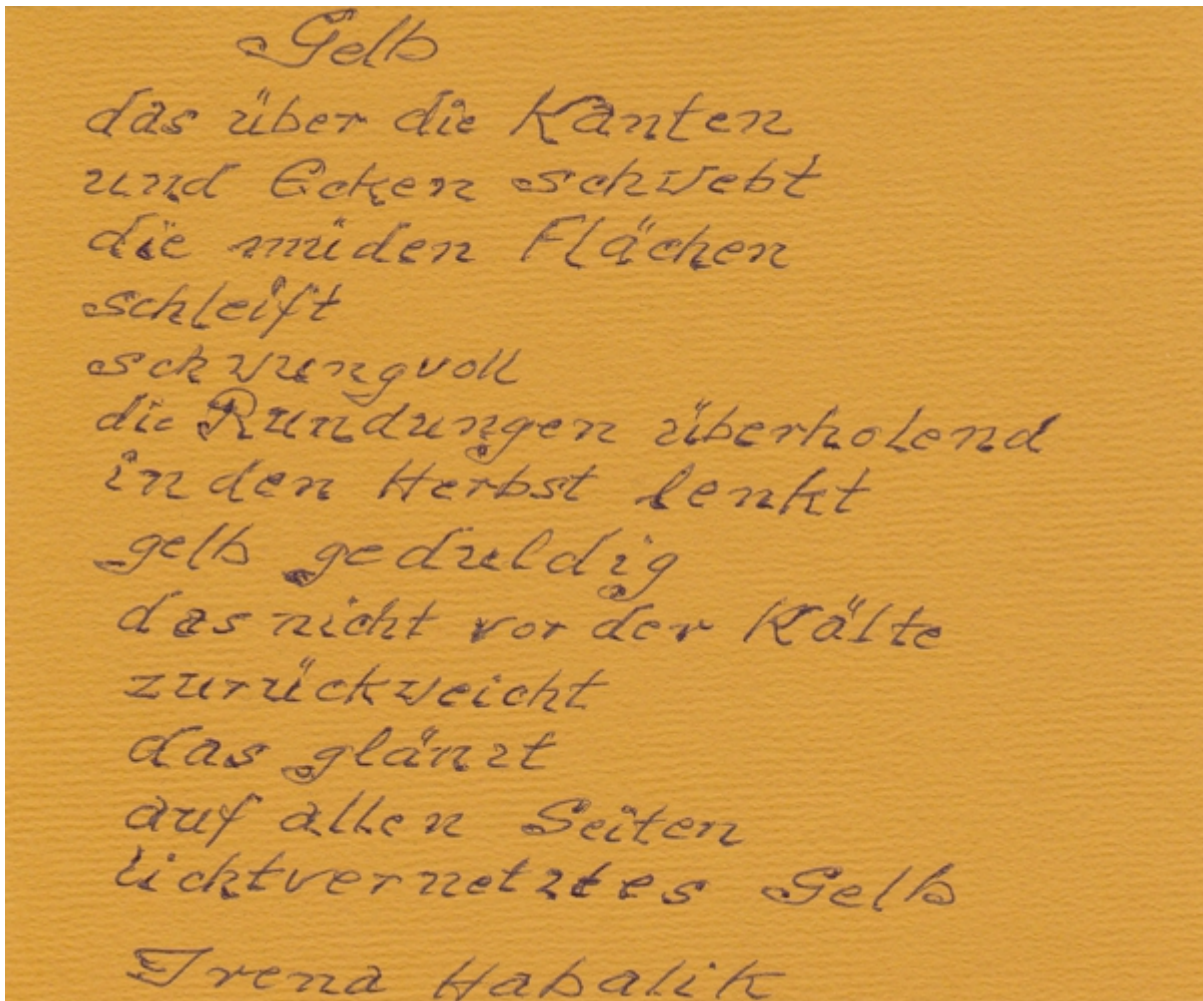 Gelb
das über die Kanten
und Ecken schwebt
die müden Flächen
schleift
schwungvoll
die Rundungen überholend
in den Herbst lenkt
gelb geduldig
das nicht vor der Kälte
zurückweicht
das glänzt
auf allen Seiten
lichtvernetztes Gelb
Irena Habalik